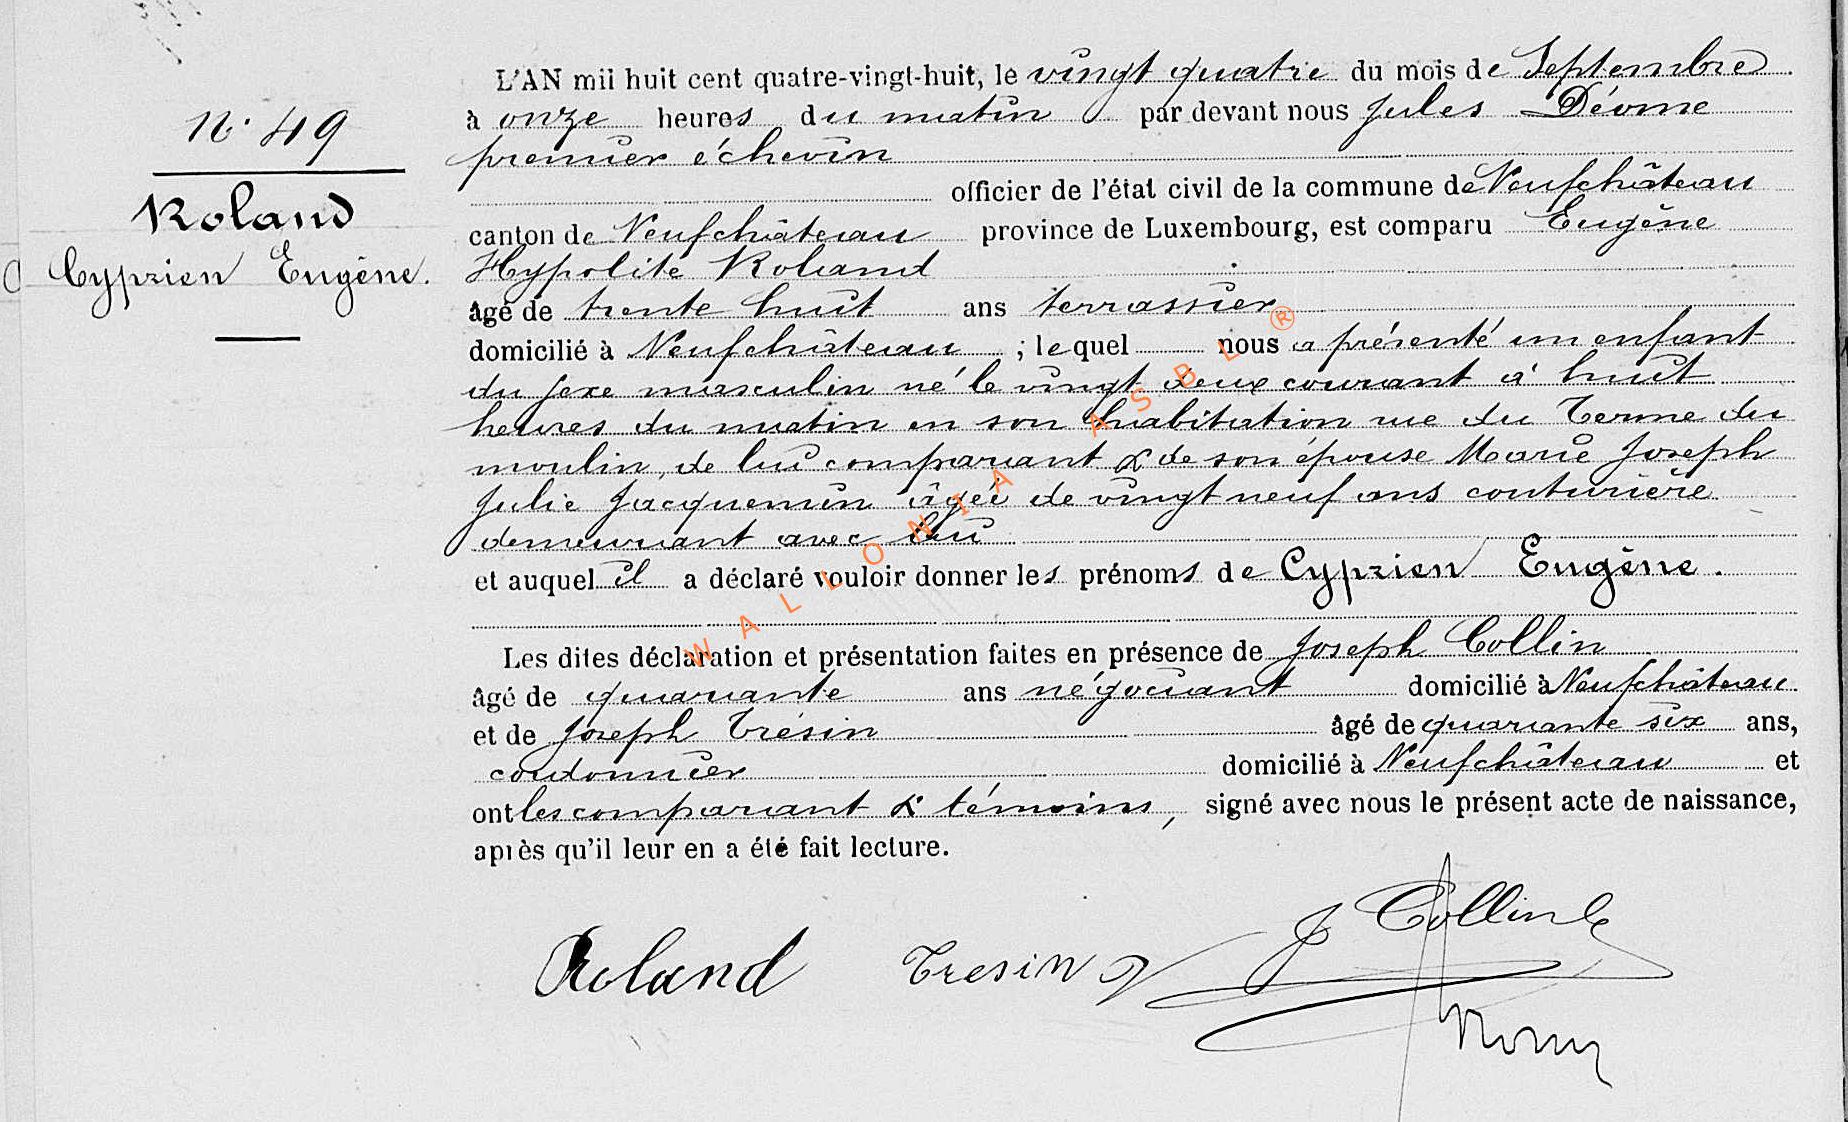 N° 49
Roland
Cyprien Eugène.
L'AN mil huit cent quatre-vingt-huit, le vingt quatre du mois de Septembre
à onze heures du matin par devant nous Jules Déome
premier échevin
officier de l'état civil de la commune de Neufchâteau
canton de Neufchâteau province de Luxembourg, est comparu Eugène
Hypolite Roland
âgé de trente huit ans terrassier
domicilié à Neufchâteau ; lequel nous a présenté un enfant
du sexe masculin né le vingt deux courant à huit
heures du matin en son habitation rue du Terme du
moulin, de lui comparant & de son épouse Marie Joseph
Julie Jacquemin âgée de vingt neuf ans couturière
demeurant avec lui
et auquel il a déclaré vouloir donner les prénoms de Cyprien Eugène.
Les dites déclaration et présentation faites en présence de Joseph Collin
âgé de quarante ans négociant domicilié à Neufchâteau
et de Joseph Trésin âgé de quarante six ans,
cordonnier domicilié à Neufchâteau et
ont les comparant & témoins, signé avec nous le présent acte de naissance,
après qu'il leur en a été fait lecture.
Roland Tresin J Collin
WALLONIA ASBL ®